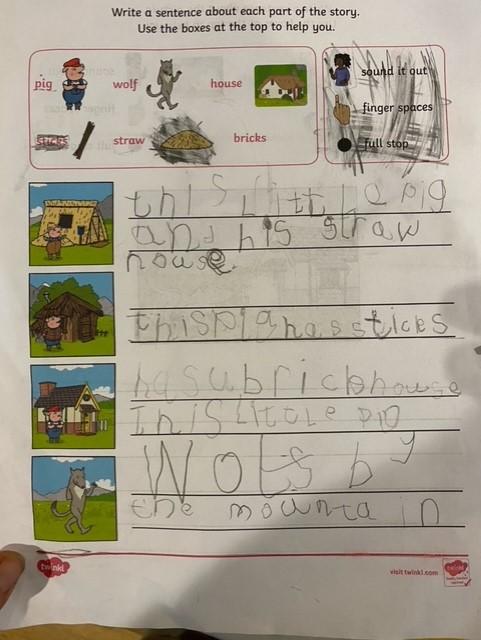 Write a sentence about each part of the story.
Use the boxes at the top to help you.
pig wolf house
sticks straw bricks
sound it out
finger spaces
full stop
this little pig
and his straw
house.
thispighassticks
hasubrickhouse
This Little pig
Wolfs by
the mountain
twinkl
visit twinkl.com
twinkl